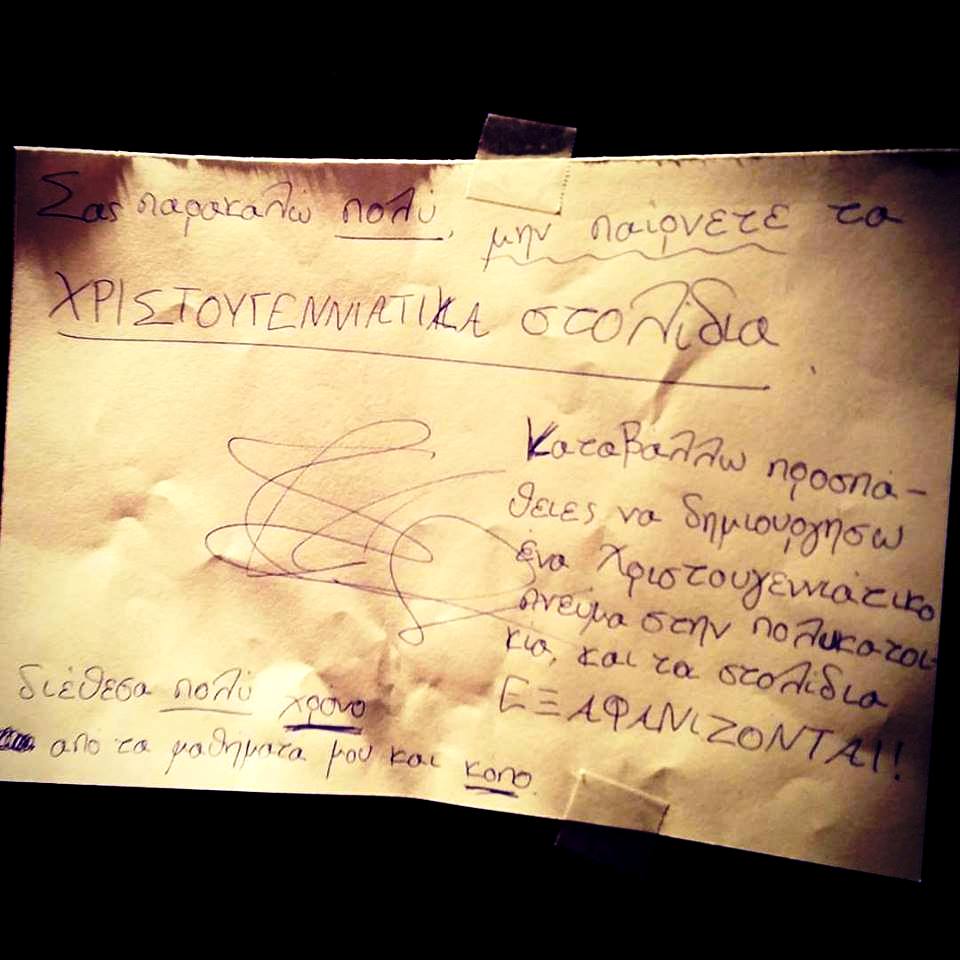 Σας παρακαλώ πολύ, μην παίρνετε τα
ΧΡΙΣΤΟΥΓΕΝΝΙΑΤΙΚΑ στολίδια
Καταβάλλω προσπά-
θειες να δημιουργήσω
ένα Χριστουγεννιάτικο
πνεύμα στην πολυκατοι-
κία, και τα στολίδια
ΕΞΑΦΑΝΙΖΟΝΤΑΙ!
διέθεσα πολύ χρόνο
από τα μαθήματα μου και κοπο.